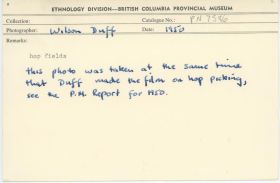 ETHNOLOGY DIVISION—BRITISH COLUMBIA PROVINCIAL MUSEUM
Collection: Catalogue No.: PN 7586
Photographer: Wilson Duff Date: 1950
Remarks:
hop fields
this photo was taken at the same time
that Duff made the film on hop picking,
see the P.M. Report for 1950.